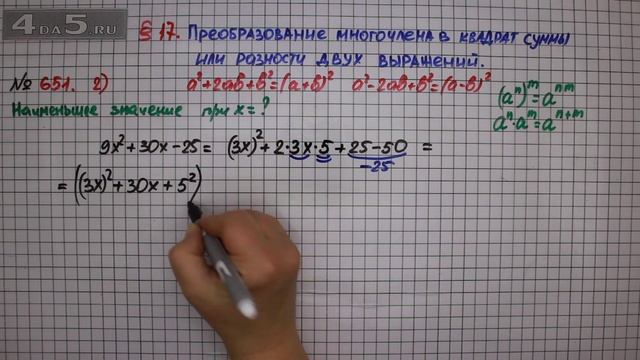 4DA5.RU
§ 17. Преобразование многочлена в квадрат суммы
или разности двух выражений.
№ 651. 2) a²+2ab+b²=(a+b)² a²-2ab+b²=(a-b)²
Наименьшее значение при x=?
(aⁿ)ᵐ=aⁿᵐ
aⁿ·aᵐ=aⁿ⁺ᵐ
9x²+30x-25= (3x)²+2·3x·5+25-50 =
-25
=((3x)²+30x+5²)